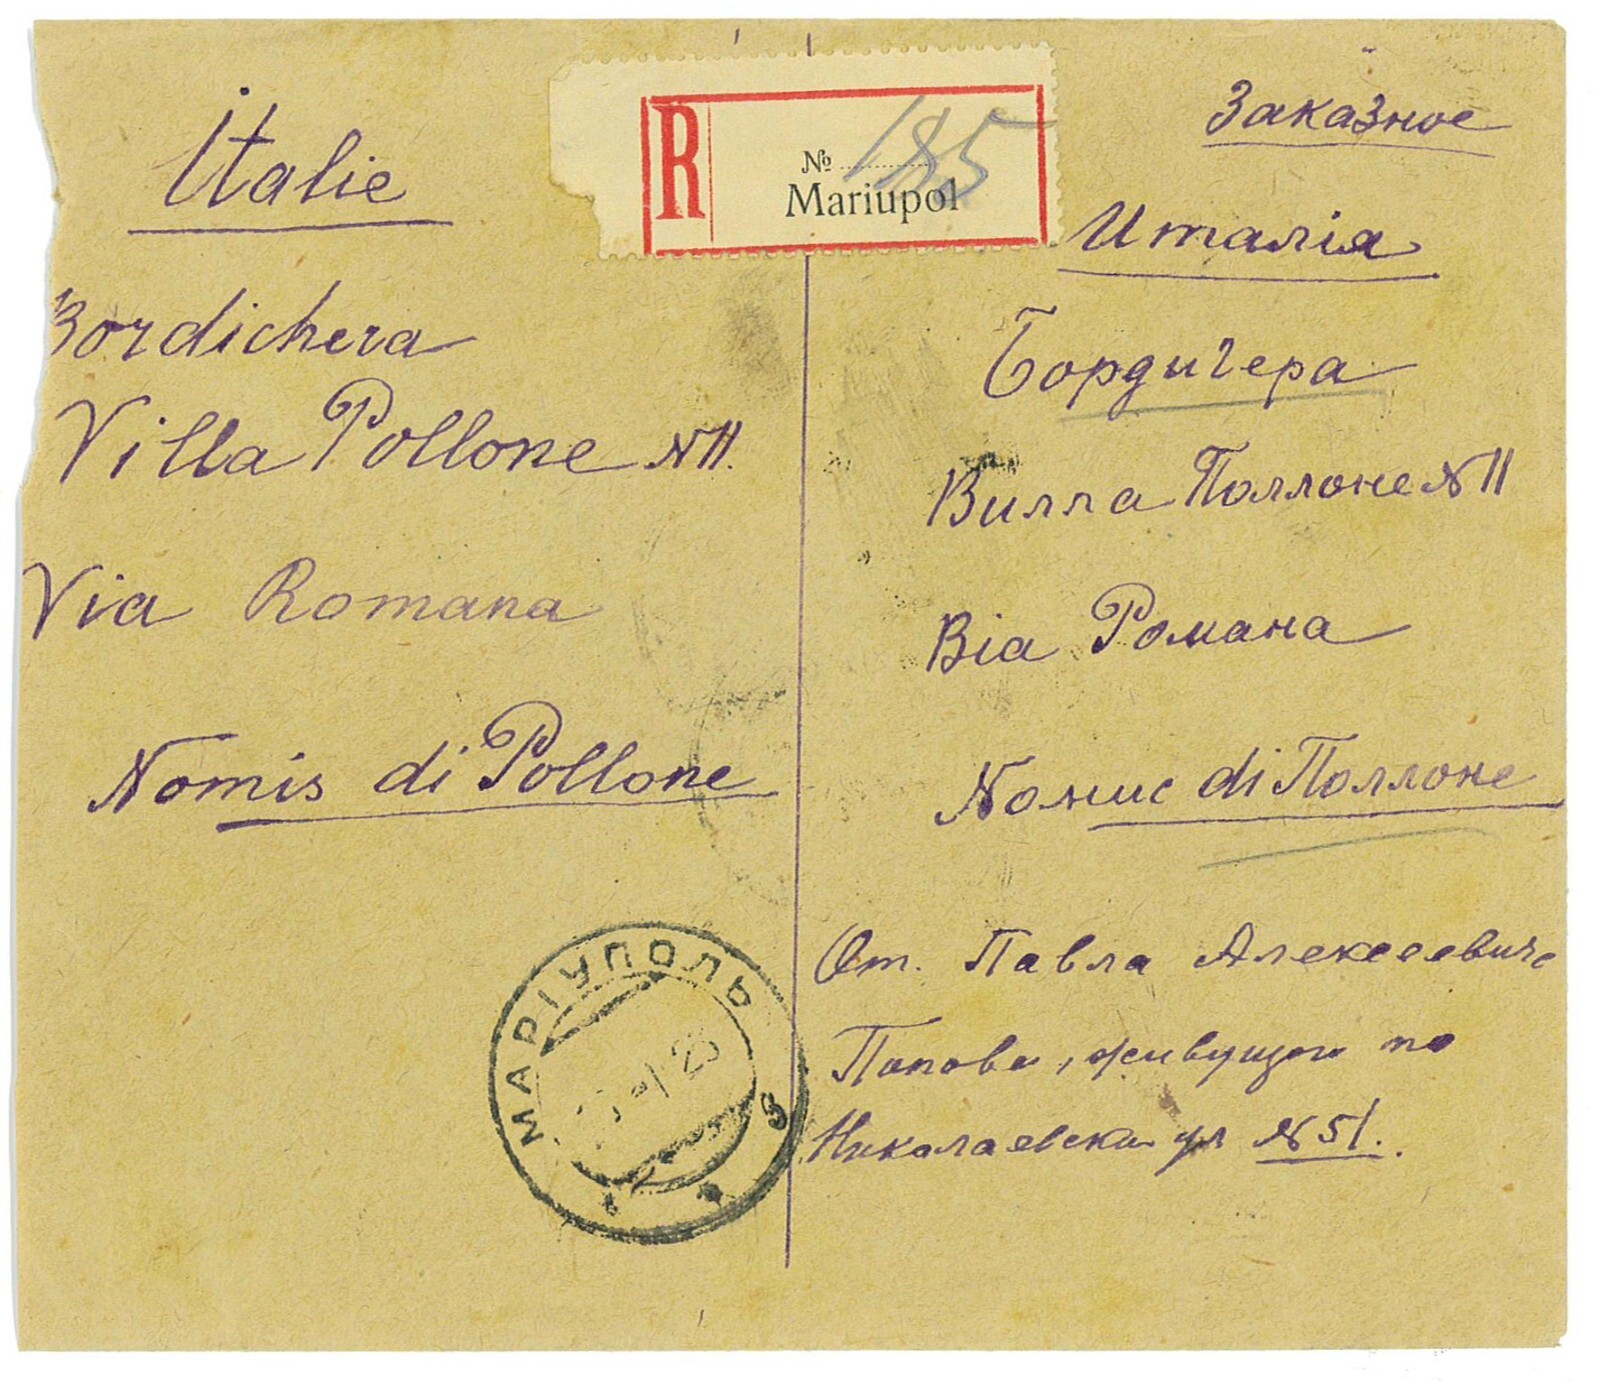 Italie
Bordichera
Villa Pollone N11.
Via Romana
Nomis di Pollone
R
№ 185
Mariupol
Заказное
Италія
Бордичера
Вилла Поллоне N11
Віа Романа
Nомис di Поллоне
От. Павла Алексеевича
Попова, живущои по
Николаевски ул N51.
МАРІУПОЛЬ